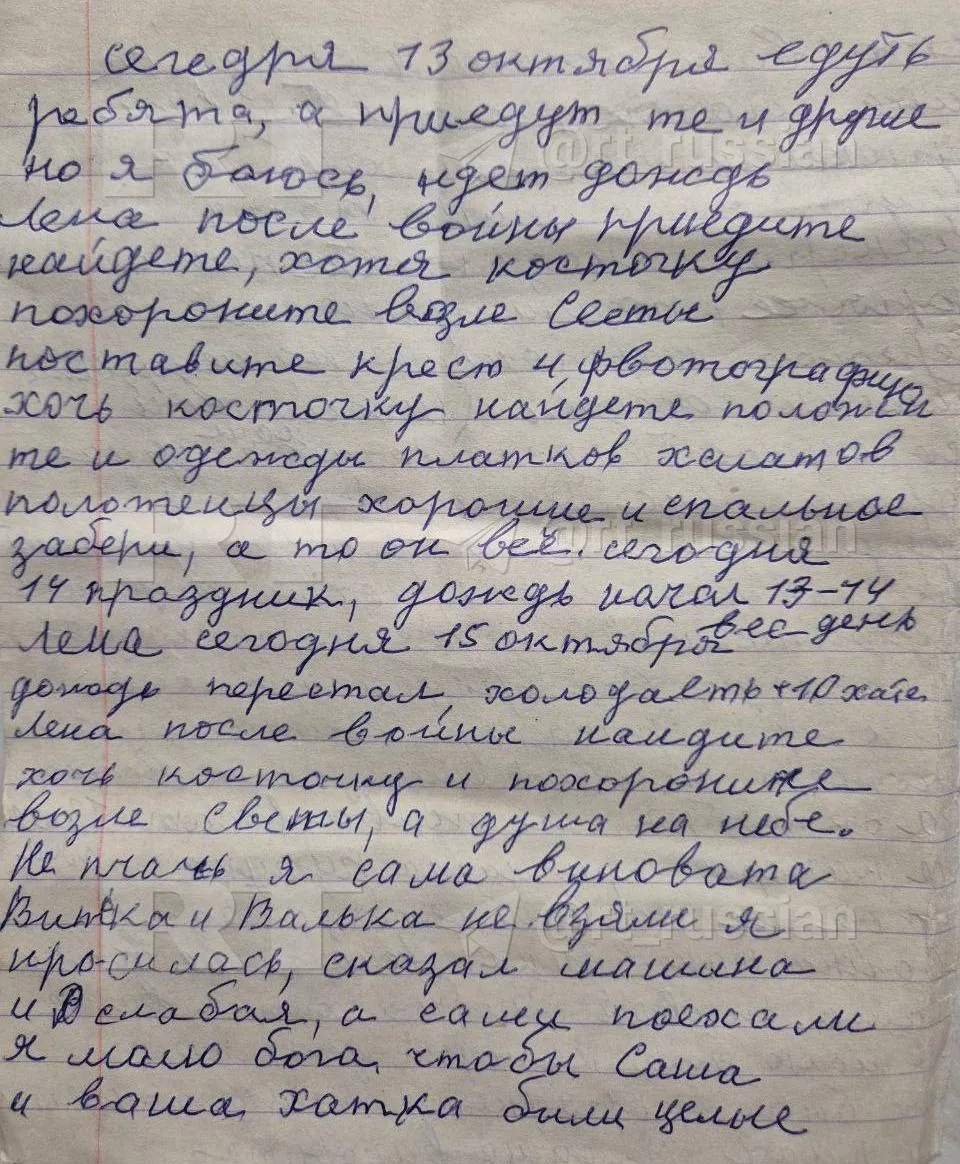 сегедря 13 октября едуть
ребята, а приедут те и другие
но я боюсь, идет дождь
Лена после войны приедите
найдете, хотя косточку
похороните возле Светы
поставите крест и фвотографию
хочь косточку найдете положи
те и одежды платков халатов
полотенцы хорошие и спальное
забери, а то он всё. сегодня
14 праздник, дождь начал 13-14
Лена сегодня 15 октября вес день
дождь перестал, холодаеть +10 хате.
Лена после войны найдите
хочь косточку и похороните
возле Светы, а душа на небе.
Не плачь я сама виновата
Витька и Валька не взяли я
просилась, сказал машина
и слабая, а сами поехали
я молю бога, чтобы Саша
и ваша хатка били целые
@rt_russian
@rt_russian
@rt_russian